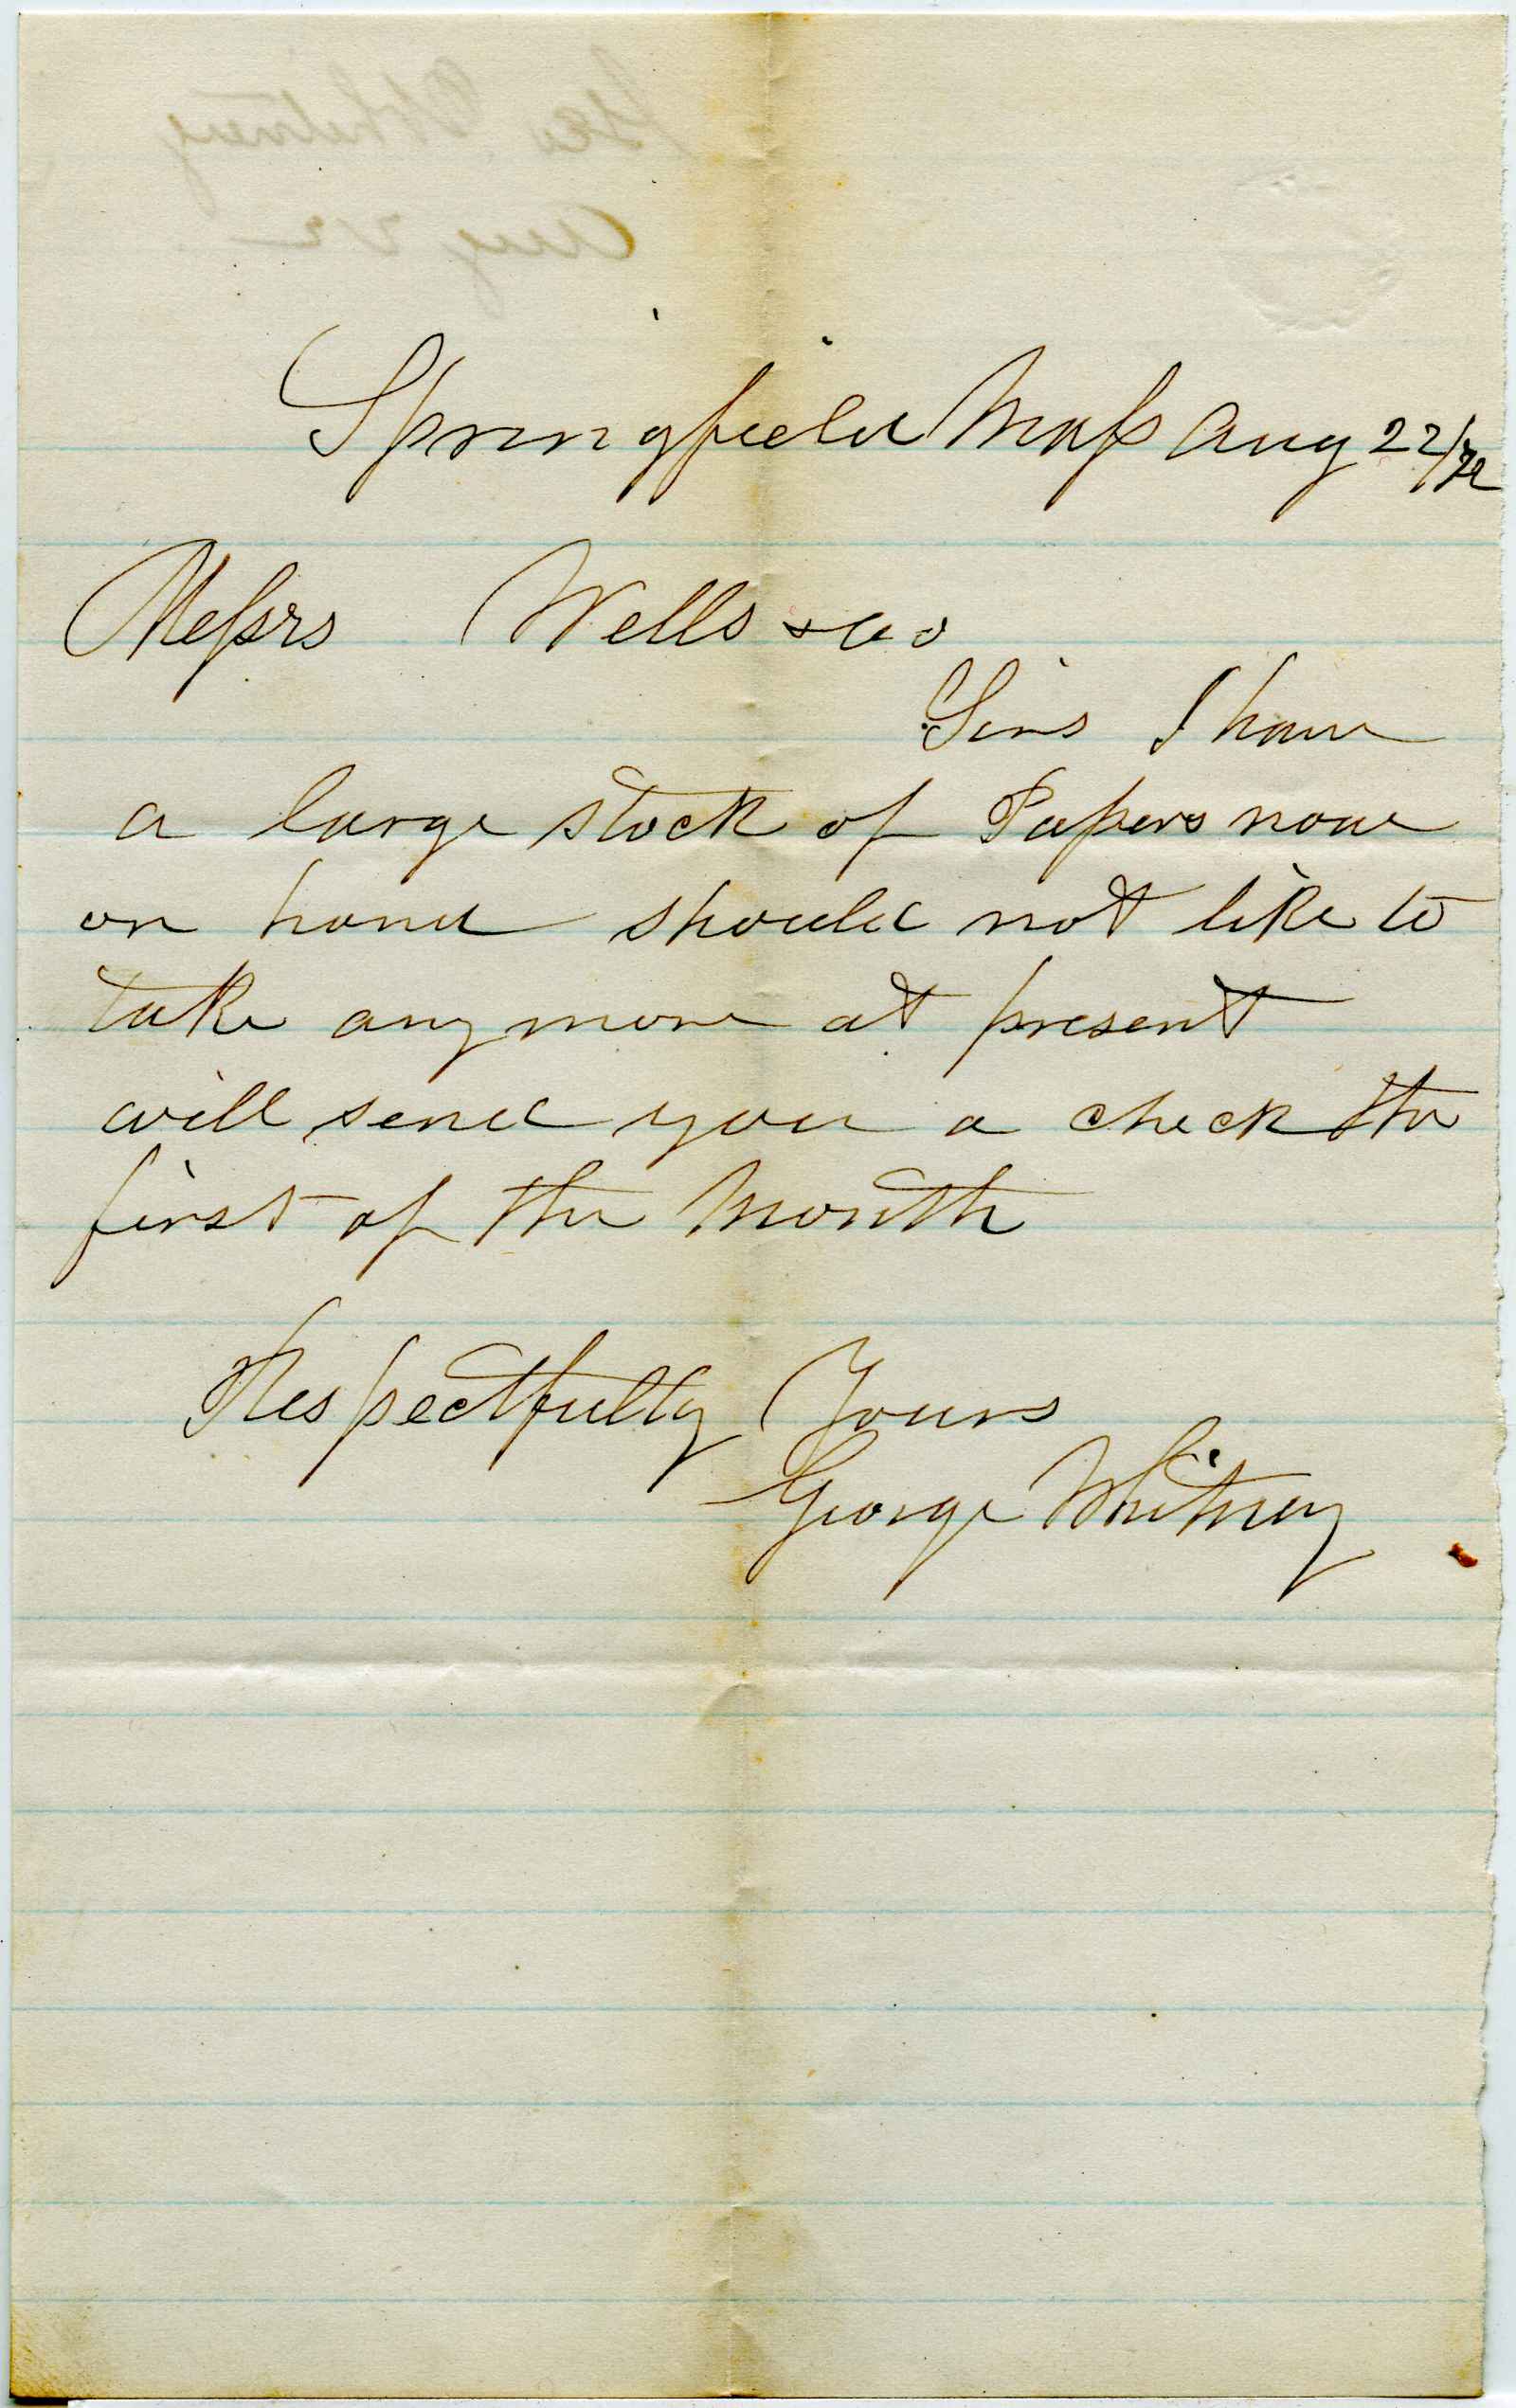 Geo Whitney
Aug 22
Springfield Mass Aug 22/72
Messrs Wells & Co
Sirs I have
a large stock of Papers now
on hand should not like to
take any more at present
will send you a check the
first of the Month
Respectfully Yours
George Whitney